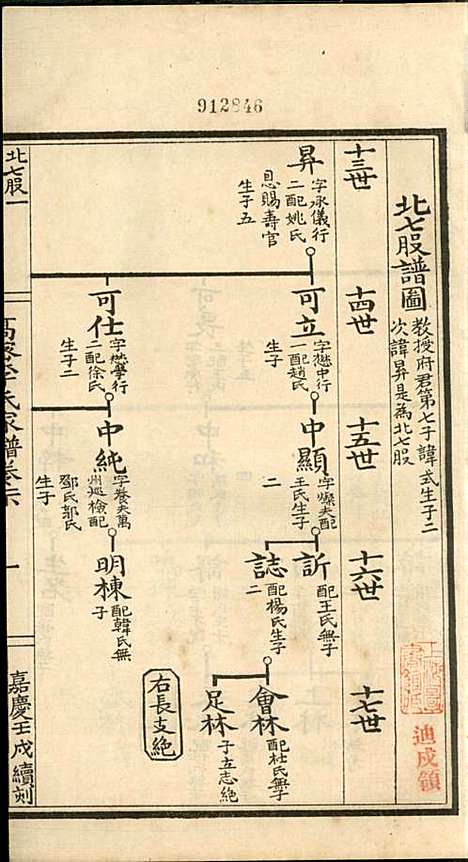 912846
北七股譜圖
教授府君第七子諱式生子二
次諱昇是為北七股
十三世
十四世
十五世
十六世
十七世
昇
字承儀行
二配姚氏
恩賜壽官
生子五
可立
字懋中行
一配趙氏
生子
中顯
字燦夫配
王氏生子
二
訢
配王氏無子
誌
配楊氏生子
二
會林
配杜氏無子
足林
子立志絶
右長支絶
可仕
字懋學行
二配徐氏
生子二
中純
字養夫萬
州巡檢配
鄒氏郭氏
生子
明棟
配韓氏無
子
北七股一
高密李氏家譜卷六
一
嘉慶壬戌續刻
迪成領